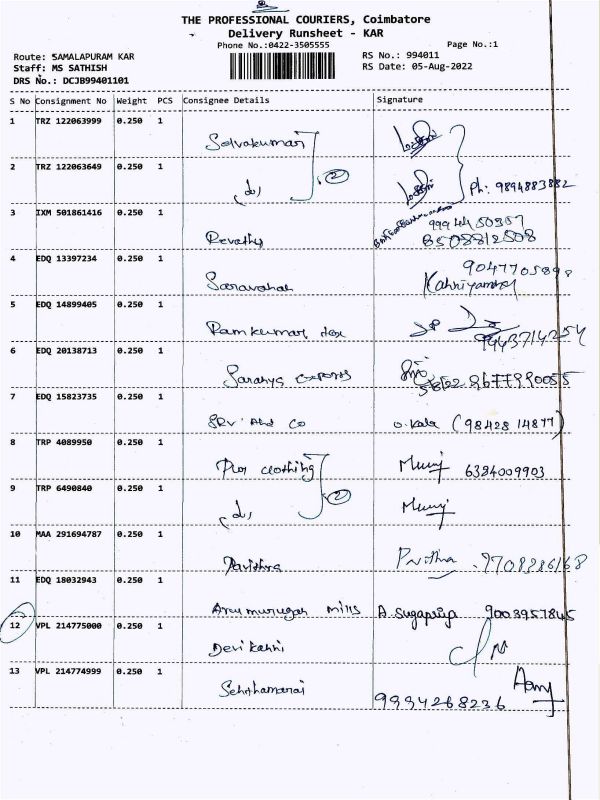 THE PROFESSIONAL COURIERS, Coimbatore
Delivery Runsheet - KAR
Phone No.:0422-3505555 Page No.:1
Route: SAMALAPURAM KAR RS No.: 994011
Staff: MS SATHISH RS Date: 05-Aug-2022
DRS No.: DCJB99401101
S No Consignment No Weight PCS Consignee Details Signature
1 TRZ 122063999 0.250 1
Selvakumar
2 TRZ 122063649 0.250 1
2 Ph: 9894883882
3 IXM 501861416 0.250 1
Revathy 8508812508
4 EDQ 13397234 0.250 1
Saravanan
5 EDQ 14899405 0.250 1
Ramkumar tex 9443714254
6 EDQ 20138713 0.250 1
Saranya exports
7 EDQ 15823735 0.250 1
SRV And Co O. Kala (98428 14877)
8 TRP 4089950 0.250 1
clothing 6384009903
9 TRP 6490840 0.250 1
2
10 MAA 291694787 0.250 1
Pavithra
11 EDQ 18032943 0.250 1
Arumurugan mills A. Sugapriya 9003957845
12 VPL 214775000 0.250 1
Devikanni
13 VPL 214774999 0.250 1
Senthamarai
9994268236